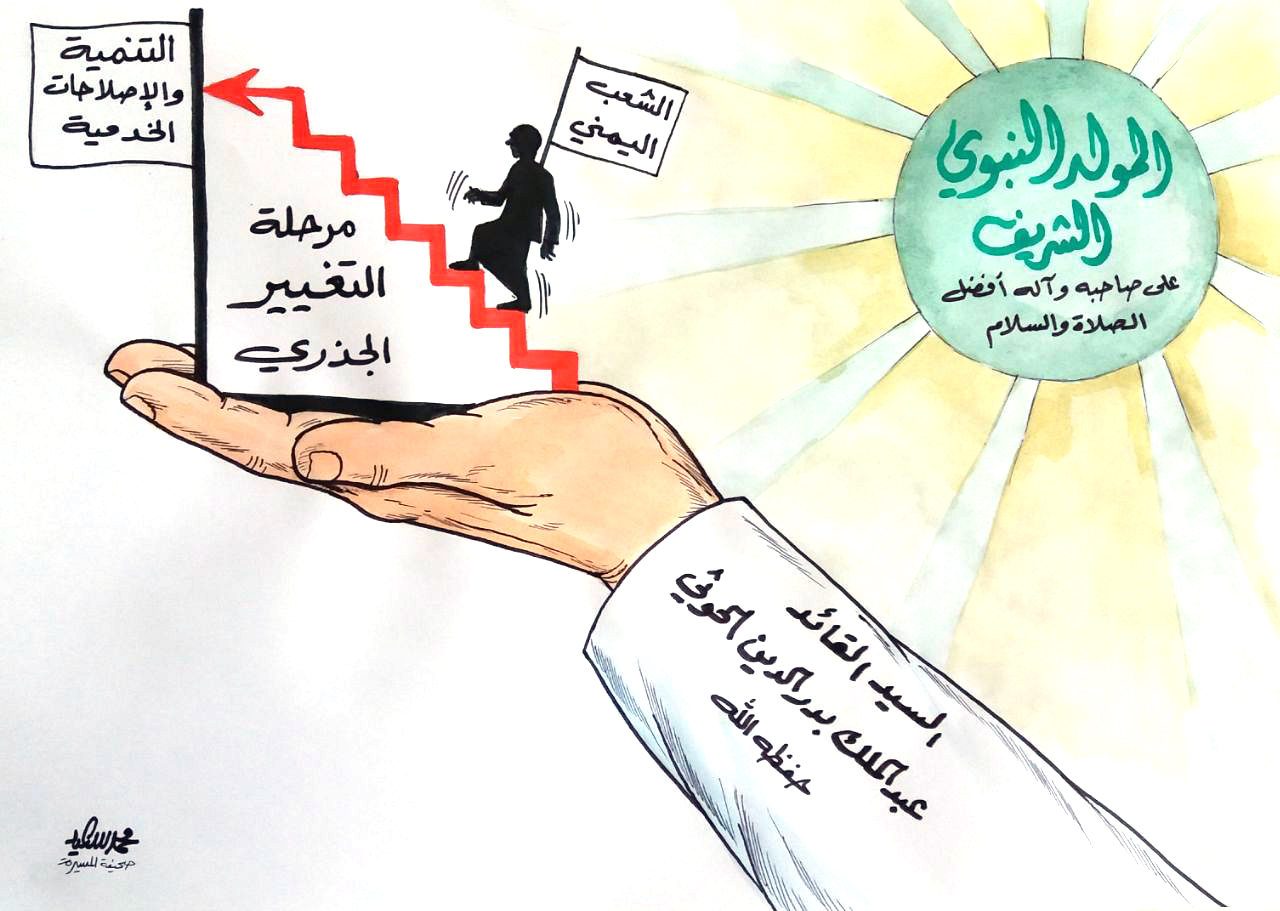 المولد النبوي
الشريف
على صاحبه وآله أفضل
الصلاة والسلام
الشعب
اليمني
التنمية
والإصلاحات
الخدمية
مرحلة
التغيير
الجذري
السيد القائد
عبدالملك بدرالدين الحوثي
حفظه الله
صحيفة المسيرة